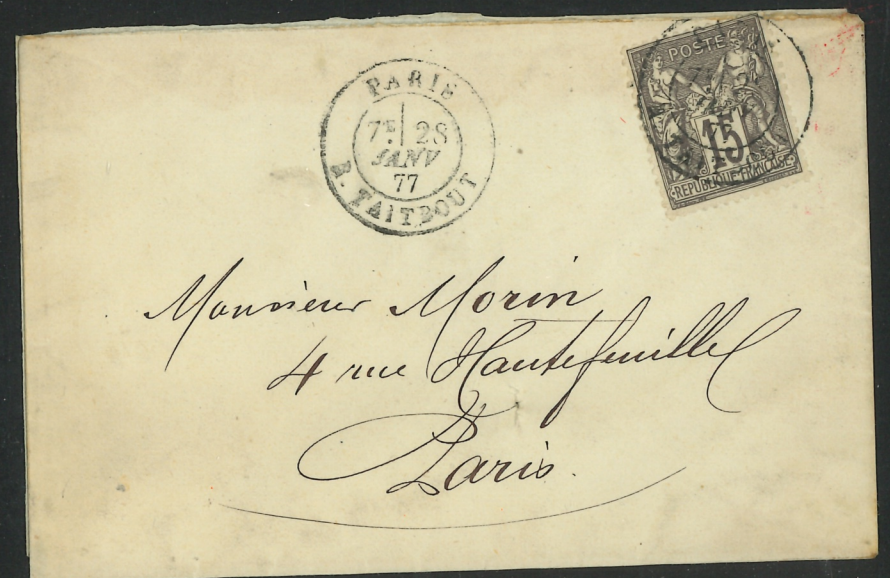 PARIS
7E 28
JANV
77
R. TAITBOUT
POSTE
15
REPUBLIQUE FRANCAISE
Monsieur Morin
4 rue Hautefeuille
Paris.